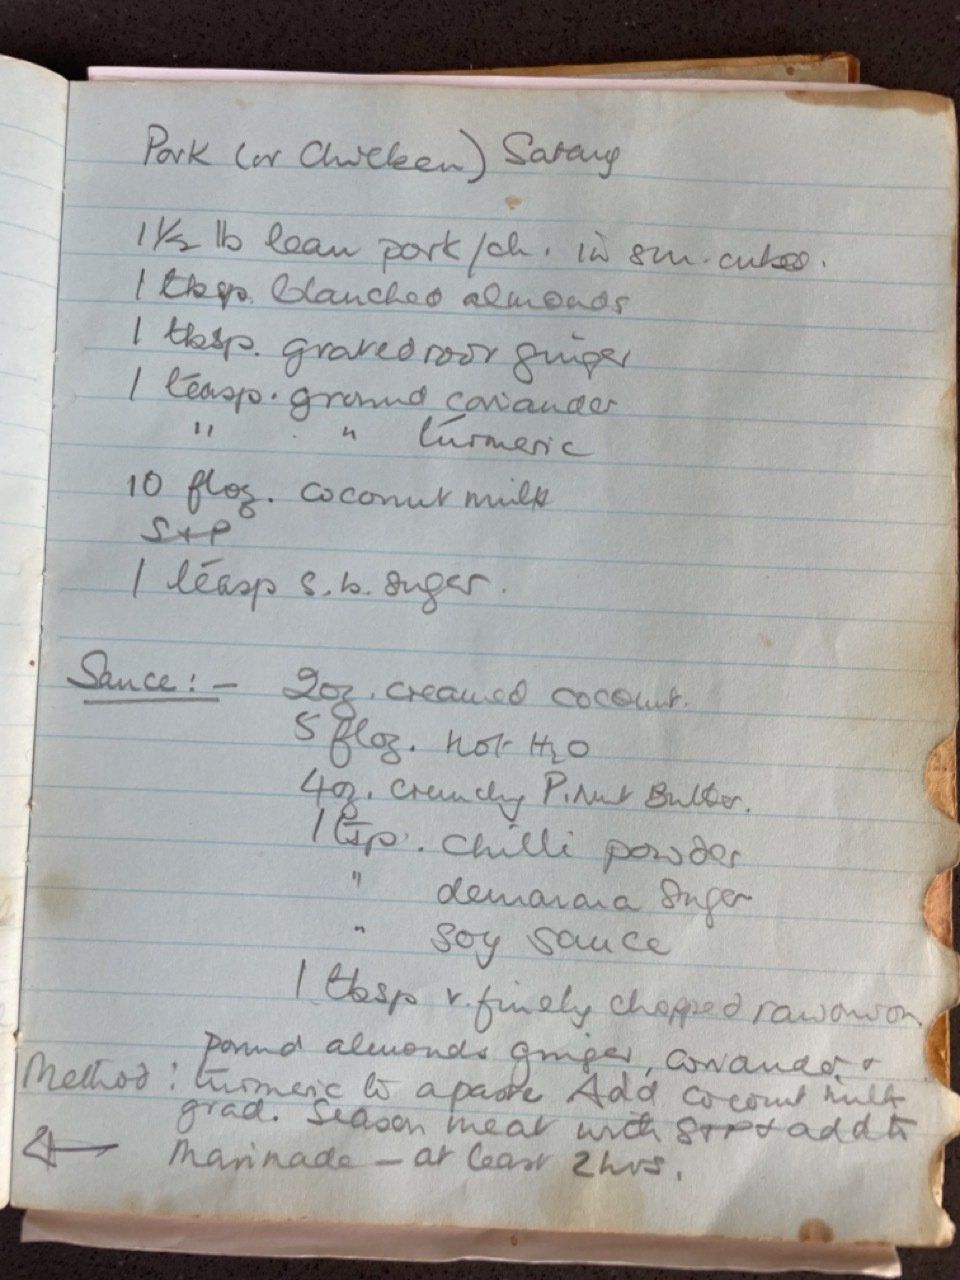 Pork (or Chicken) Satay
1 1/2 lb lean pork/ch. in sm. cubes.
1 tbsp. blanched almonds
1 tbsp. grated root ginger
1 teasp. ground coriander
" " turmeric
10 floz. coconut milk
S+P
1 teasp s.b. sugar.
Sauce:- 2oz. creamed coconut.
5 floz. hot H2O
4oz. crunchy P.Nut Butter.
1 tsp. chilli powder
" demarara sugar
" soy sauce
1 tbsp v. finely chopped raw onion.
Pound almonds ginger, coriander +
Method: turmeric to a paste Add coconut milk
grad. Season meat with S+P + add to
marinade - at least 2 hrs.
←